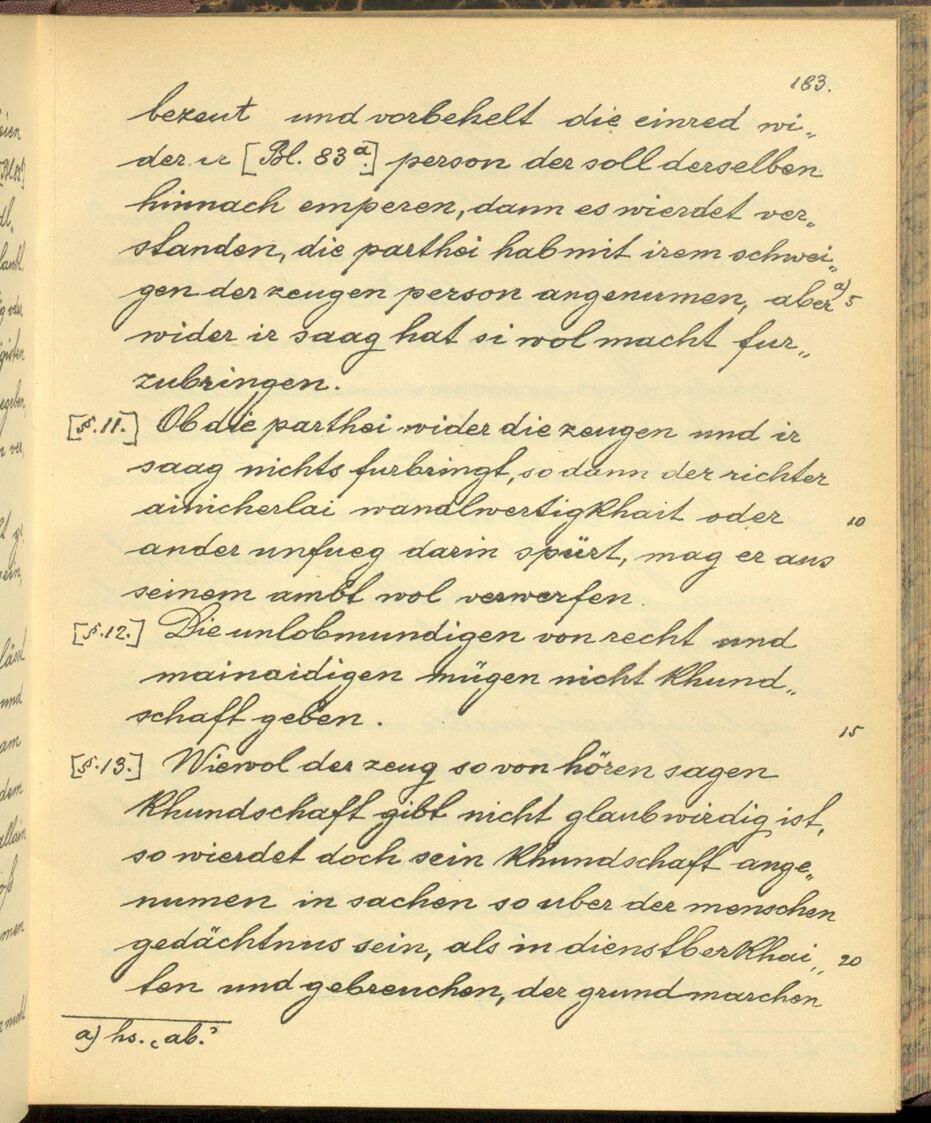 183.
bezeut und vorbehelt die einred wi„
der ir [Bl. 83a.] person der soll derselben
hinnach emperen, dann es wierdet ver„
standen, die parthei hab mit irem schwei„
gen der zeugen person angenumen, aber a) 5
wider ir saag hat si wol macht fur„
zubringen.
[§.11.] Ob die parthei wider die zeugen und ir
saag nichts furbringt, so dann der richter
ainicherlai wandlwertigkhait oder 10
ander unfueg darin spürt, mag er aus
seinem ambt wol verwerfen.
[§.12.] Die unlobmundigen von recht und
mainaidigen mügen nicht khund„
schaft geben. 15
[§.13.] Wiewol der zeug so von hören sagen
khundschaft gibt nicht glaubwirdig ist,
so wierdet doch sein khundschaft ange„
numen in sachen so uber der menschen
gedächtnus sein, als in dienstberkhai„ 20
ten und gebreuchen, der grundmarchen
a) hs. ‚ab.’